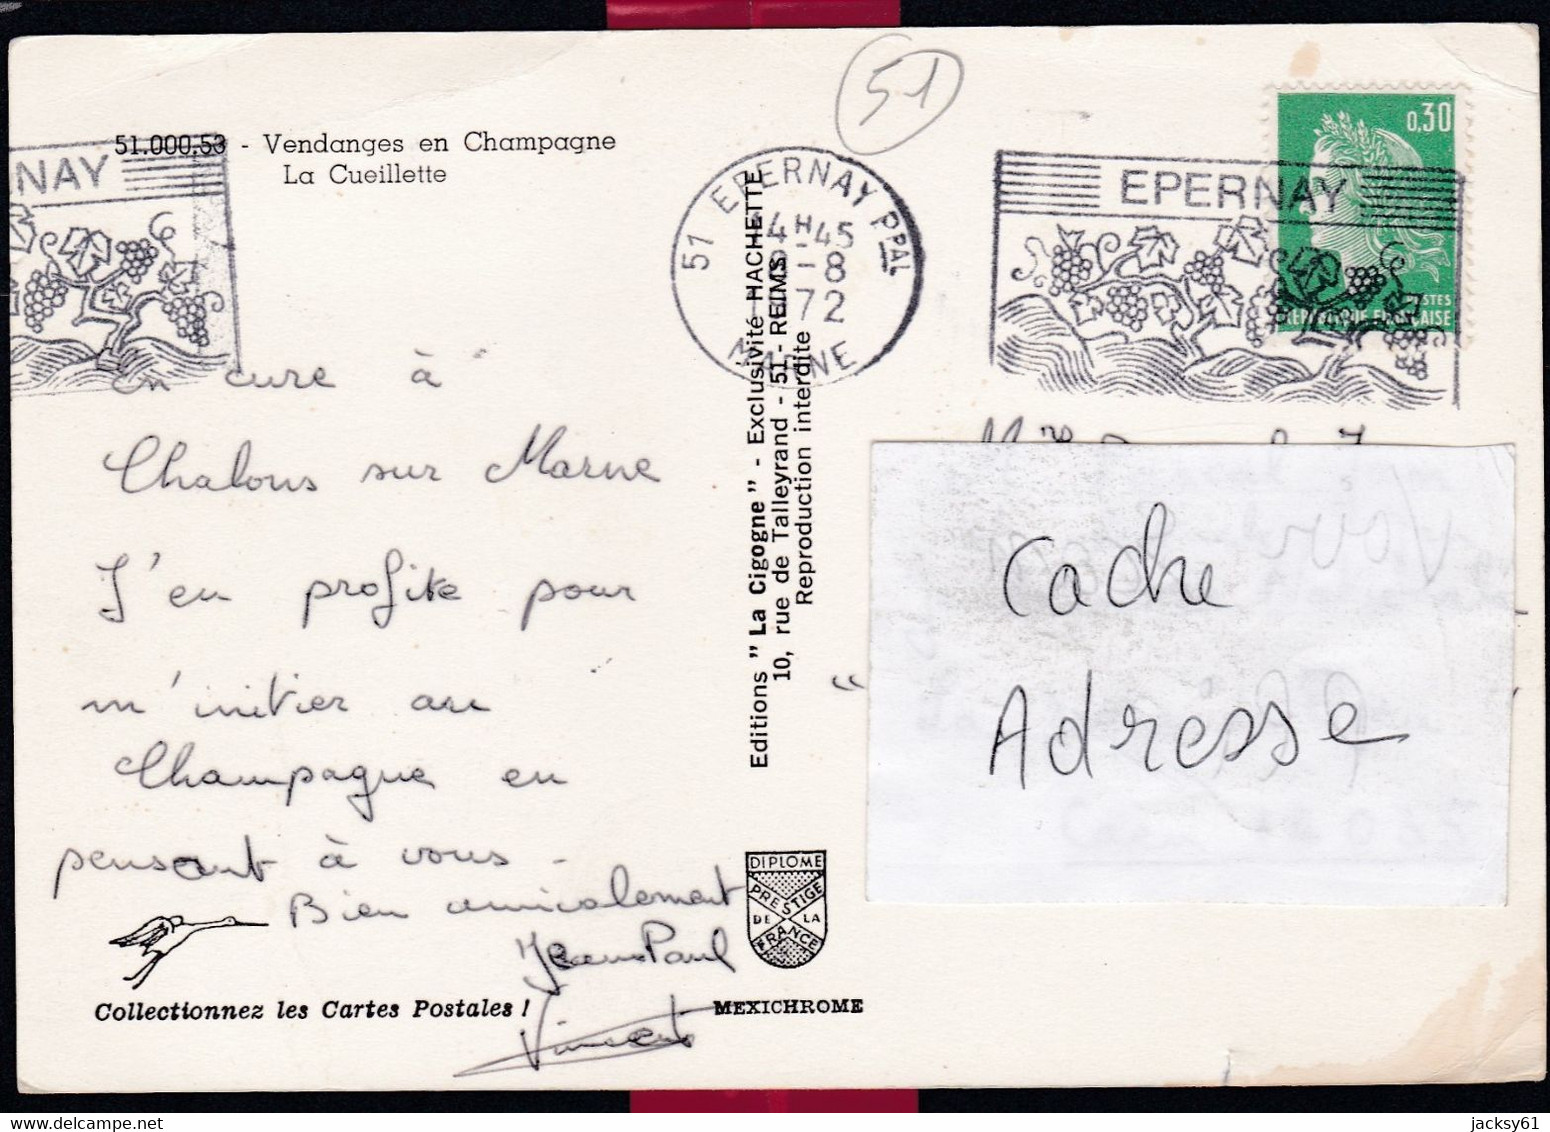 51
51.000.53 - Vendanges en Champagne
La Cueillette
NAY
51 EPERNAY PPAL
14H45
-8
1972
MARNE
EPERNAY
0,30
POSTES
REPUBLIQUE FRANÇAISE
en cure à
Chalons sur Marne
J'en profite pour
m'initier au
Champagne en
pensant à vous -
Bien amicalement
Jean Paul
Vincent
Editions "La Cigogne" - Exclusivité HACHETTE
10, rue de Talleyrand - 51 - REIMS
Reproduction interdite
Mme
Cache
Adresse
DIPLOME
PRESTIGE
DE LA
FRANCE
Collectionnez les Cartes Postales !
MEXICHROME
jacksy61